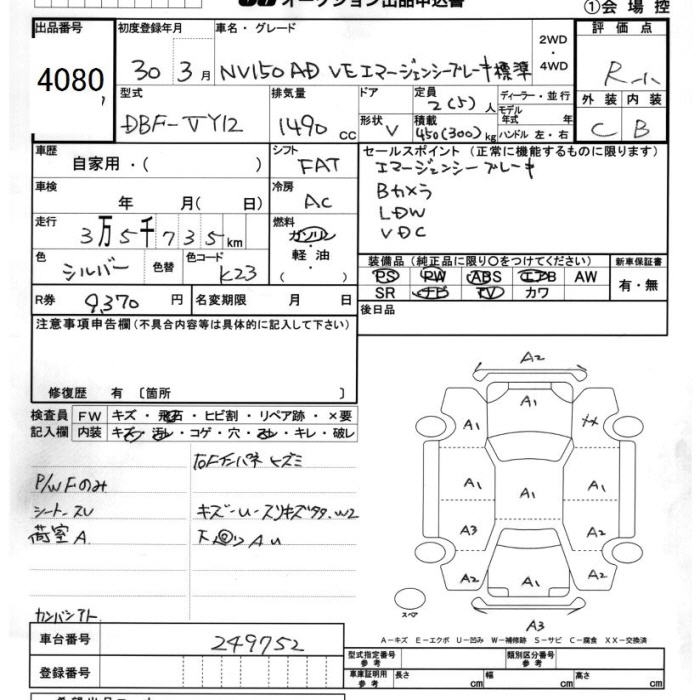 オークション出品申込書
①会場控
出品番号
4080
初度登録年月
30 3月
車名・グレード
NV150 AD VE エマージェンシーブレーキ標準
2WD
・
4WD
評価点
R-小
外装 内装
C B
型式
DBF-VY12
排気量
1490 cc
ドア
形状 V
定員 2(5)人
積載 450(300)kg
ディーラー・並行
モデル
年式 年
ハンドル 左・右
車歴
自家用・( )
シフト
FAT
セールスポイント (正常に機能するものに限ります)
エマージェンシーブレーキ
Bカメラ
LDW
VDC
車検
年 月( 日)
冷房
AC
走行
3万5千735km
燃料
ガソリン
軽油
( )
色
シルバー
色替
色コード
K23
装備品 (純正品に限り○をつけてください)
PS PW ABS エアB AW
SR ナビ TV カワ
新車保証書
有・無
R券 9,370円
名変期限 月 日
後日品
注意事項申告欄(不具合内容等は具体的に記入して下さい)
修復歴 有 〔箇所 〕
検査員
記入欄
FW キズ・飛石・ヒビ割・リペア跡・×要
内装 キズ・汚レ・コゲ・穴・スレ・キレ・破レ
P/W Fのみ
シート スレ
荷室 A
カンバンアト
A2
A1
A1
A1
A1
A1
A2
A3
A2
A2
A1
A2
A3
スペア
A-キズ E-エクボ U-凹み W-補修跡 S-サビ C-腐食 XX-交換済
車台番号
249752
登録番号
型式指定番号
参考
類別区分番号
参考
車庫証明用
参考
長さ cm
幅 cm
高さ cm